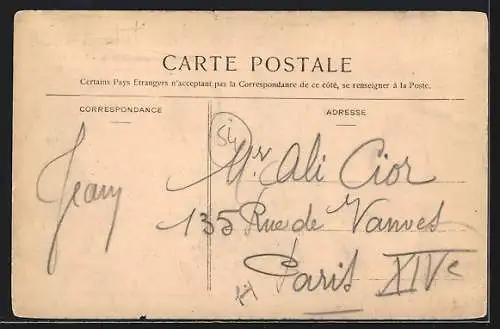 CARTE POSTALE
Certains Pays Etrangers n'acceptant pas la Correspondance de ce côté, se renseigner à la Poste.
CORRESPONDANCE
ADRESSE
54
Jeany
Mr Ali Cior
135 Rue de Vanves
Paris XIVe